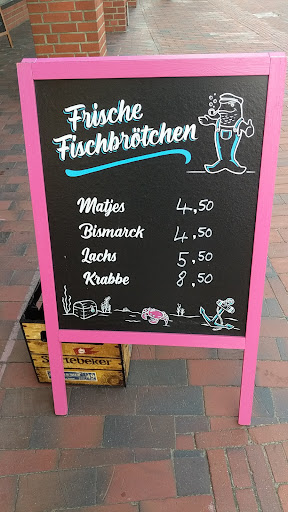 Frische
Fischbrötchen
Matjes 4,50
Bismarck 4,50
Lachs 5,50
Krabbe 8,50